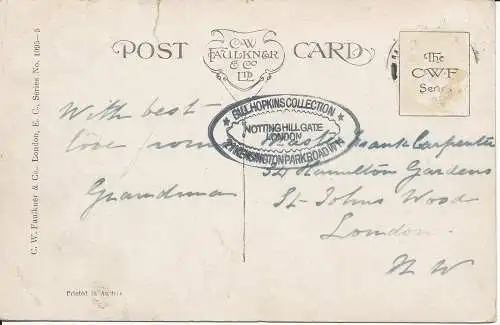 POST CARD
C.W.
FAULKNER
& Co
LTD.
The
C.W.F
Series
C. W. Faulkner & Co. London, E. C., Series No. 1005-5
With best
love from
Grandma
BILL HOPKINS COLLECTION
NOTTING HILL GATE
LONDON
KENSINGTON PARK ROAD W11
Mast Frank Carpenter
34 Hamilton Gardens
St. Johns Wood
London
N W
Printed in Austria